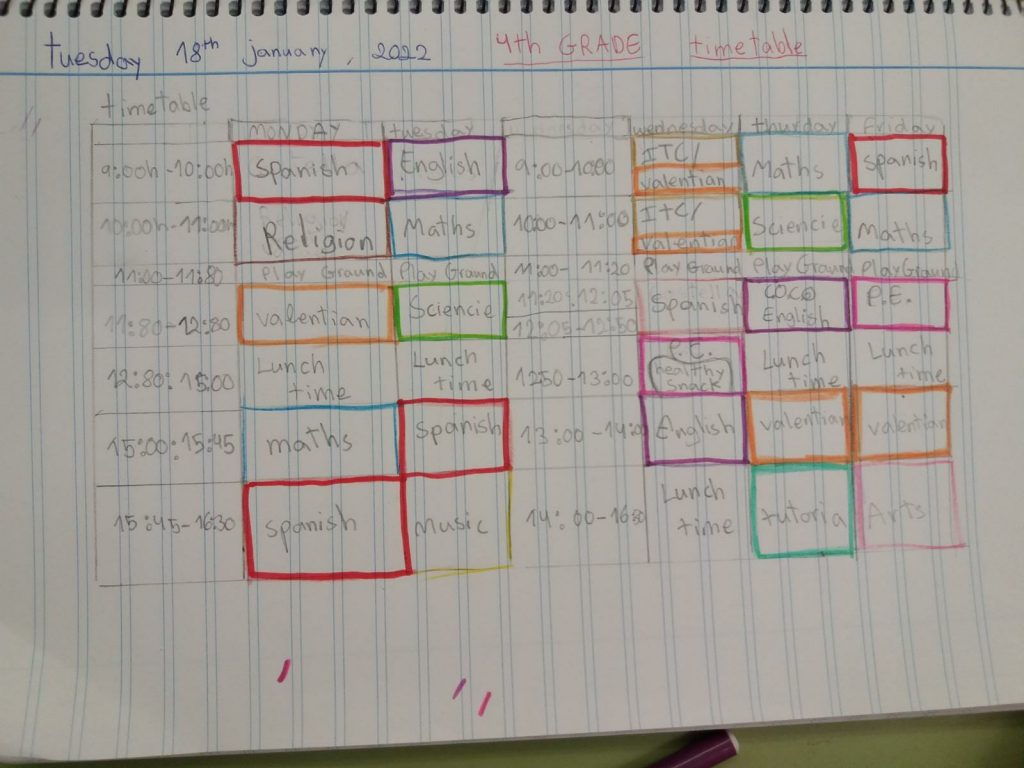 tuesday 18th january, 2022 4th GRADE timetable
timetable
MONDAY tuesday wednesday thurday Friday
9:00h-10:00h Spanish English 9:00-10:00 ITC/ valentian Maths Spanish
10:00h-11:00h Religion Maths 10:00-11:00 ITC/ valentian Sciencie Maths
11:00-11:80 Play Ground Play Ground 11:00-11:20 Play Ground Play Ground Play Ground
11:80-12:80 valentian Sciencie 11:20-12:05 Spanish COCO English P.E.
12:05-12:50
12:80:15:00 Lunch time Lunch time 12:50-13:00 P.E. healthy snack Lunch time Lunch time
15:00:15:45 maths Spanish 13:00-14:00 English valentian valentian
15:45-16:30 spanish Music 14:00-16:30 Lunch time tutoria Arts